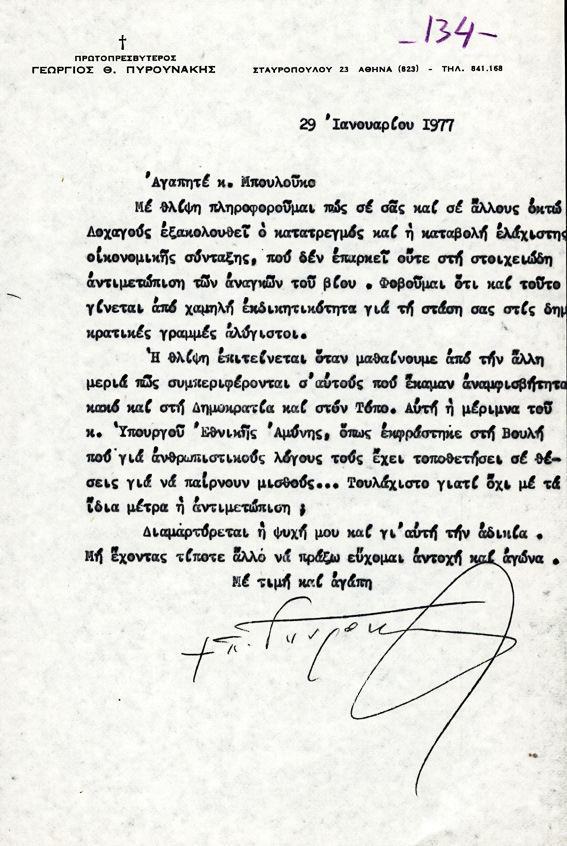 -134-
✝
ΠΡΩΤΟΠΡΕΣΒΥΤΕΡΟΣ
ΓΕΩΡΓΙΟΣ Θ. ΠΥΡΟΥΝΑΚΗΣ
ΣΤΑΥΡΟΠΟΥΛΟΥ 23 ΑΘΗΝΑ (823) - ΤΗΛ. 841.168
29 Ἰανουαρίου 1977
Ἀγαπητέ κ. Μπουλοῦκο
Μέ θλίψη πληροφοροῦμαι πώς σέ σᾶς καί σέ ἄλλους ὀκτώ
Λοχαγούς ἐξακολουθεῖ ὁ κατατρεγμός καί ἡ καταβολή ἐλάχιστης
οἰκονομικῆς σύνταξης, πού δέν ἐπαρκεῖ οὔτε στή στοιχειώδη
ἀντιμετώπιση τῶν ἀναγκῶν τοῦ βίου . Φοβοῦμαι ὅτι καί τοῦτο
γίνεται ἀπό χαμηλή ἐκδικητικότητα γιά τή στάση σας στίς δημ
κρατικές γραμμές ἀλόγιστοι.
Ἡ θλίψη ἐπιτείνεται ὅταν μαθαίνουμε ἀπό τήν ἄλλη
μεριά πώς συμπεριφέρονται σ'αὐτούς πού ἔκαμαν ἀναμφισβήτητα
κακό καί στή Δημοκρατία καί στόν Τόπο. Αὐτή ἡ μέριμνα τοῦ
κ. Ὑπουργοῦ Ἐθνικῆς Ἀμύνης, ὅπως ἐκφράστηκε στή Βουλή
πού γιά ἀνθρωπιστικούς λόγους τούς ἔχει τοποθετήσει σέ θέ-
σεις γιά νά παίρνουν μισθούς... Τουλάχιστο γιατί ὄχι μέ τά
ἴδια μέτρα ἡ ἀντιμετώπιση ;
Διαμαρτύρεται ἡ ψυχή μου καί γι'αὐτή τήν ἀδικία .
Μή ἔχοντας τίποτε ἄλλο νά πράξω εὔχομαι ἀντοχή καί ἀγώνα .
Μέ τιμή καί ἀγάπη